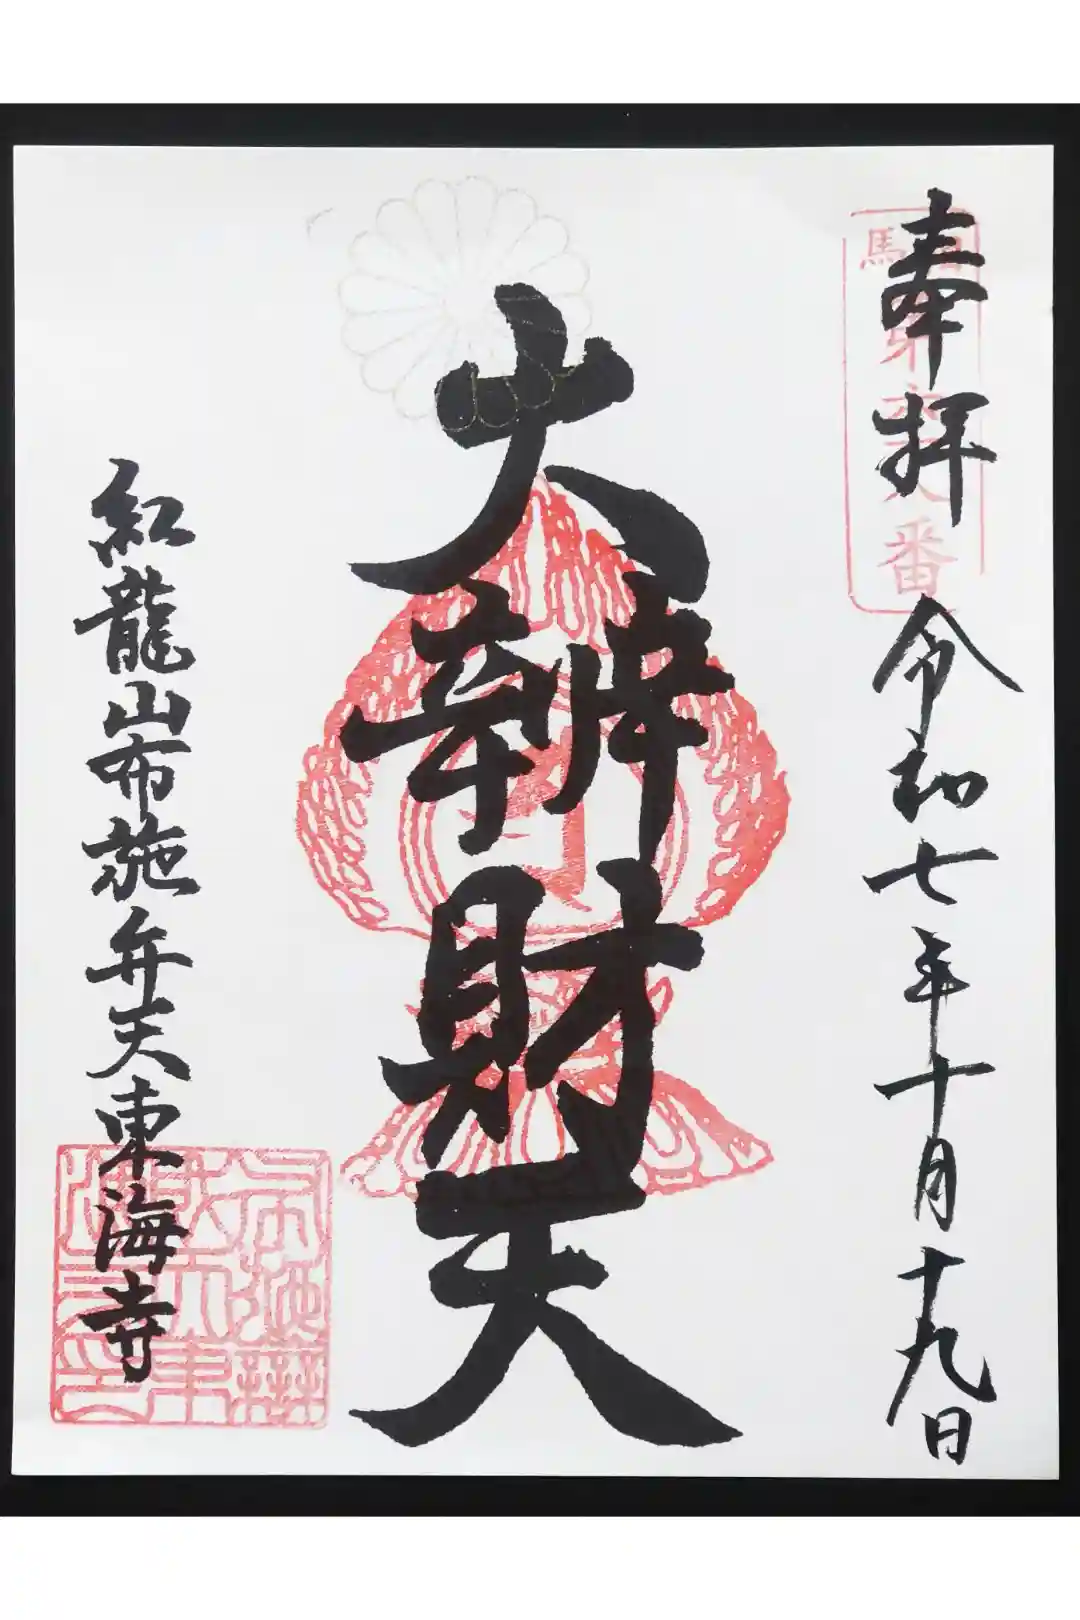 奉拝
令和七年十月十九日
大辨財天
紅龍山布施弁天東海寺